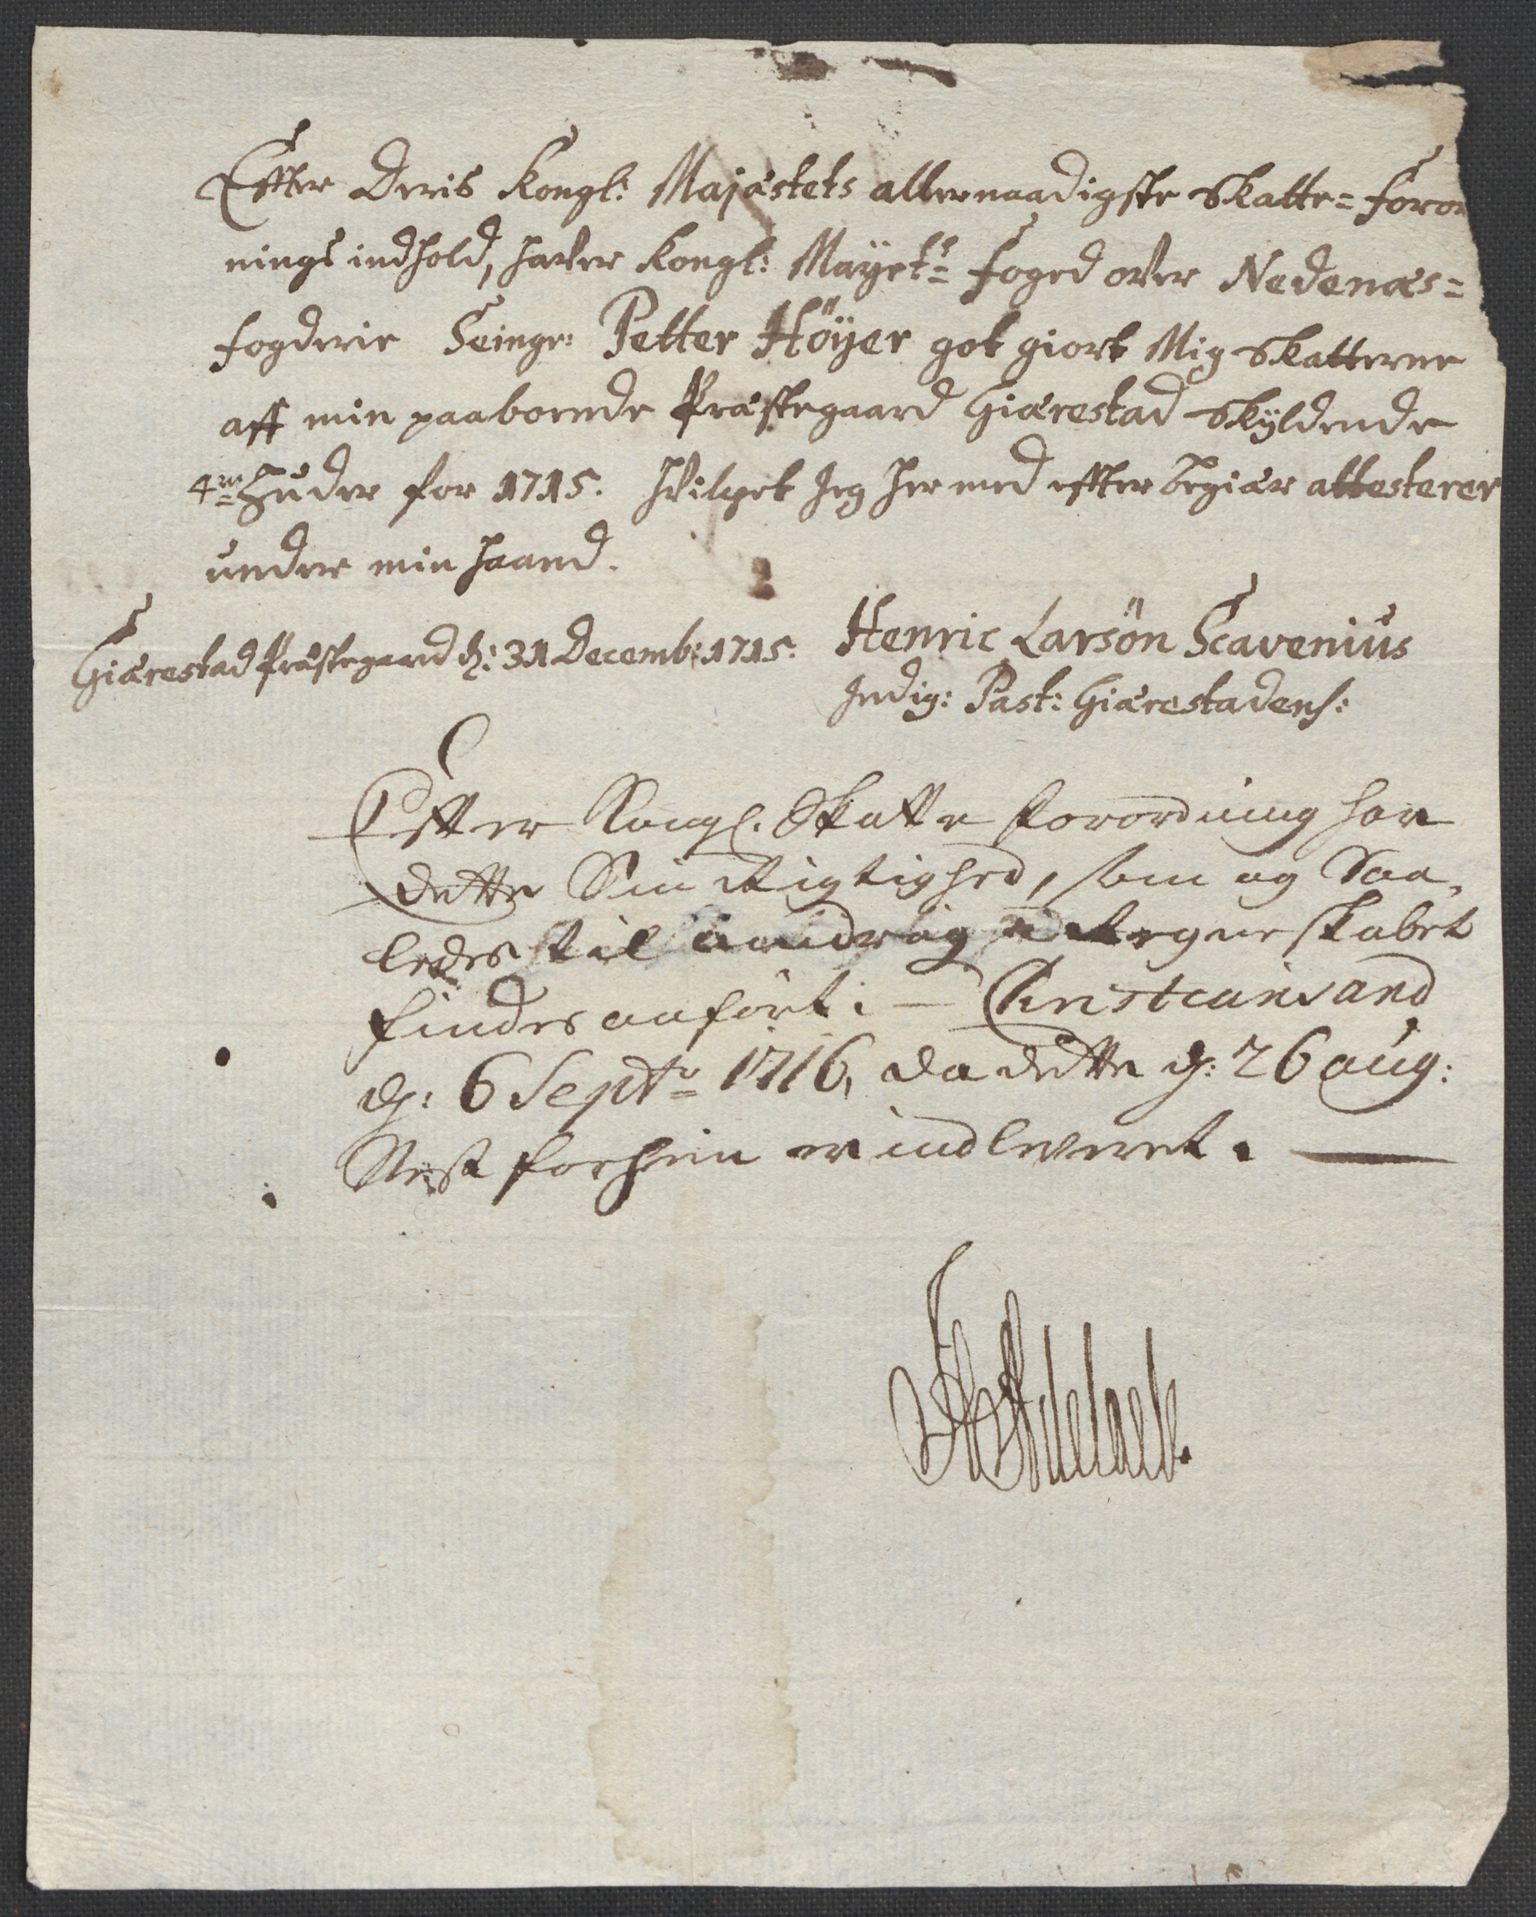 Effter Deris Kongl: Majæstets allernaadigste Skatte= foror
nings indhold, hafver Kongl: Mayetz= foged ofver Nedenæs=
fogderie Seingr: Petter Höÿer got giort Mig Skatterne
aff min paaboende Præstegaard Giærestad Skÿldende
4re Huder for 1715. Hvilket Jeg her med effter begiær attesterer
under min haand.
Giærestad Præstegaard d: 31 Decemb: 1715. Henric Larsön Scavenius
Indig: Past: Giærestadens:
Effter Kongl. Skatte forordning har
dette Sin Rigtighed, som og Saa,
ledes til afdrag i Regneskabet
findes anført. — Christiansand
d: 6 Septr 1716, da dette d: 26 aug:
Nest forhen er indleveret. —